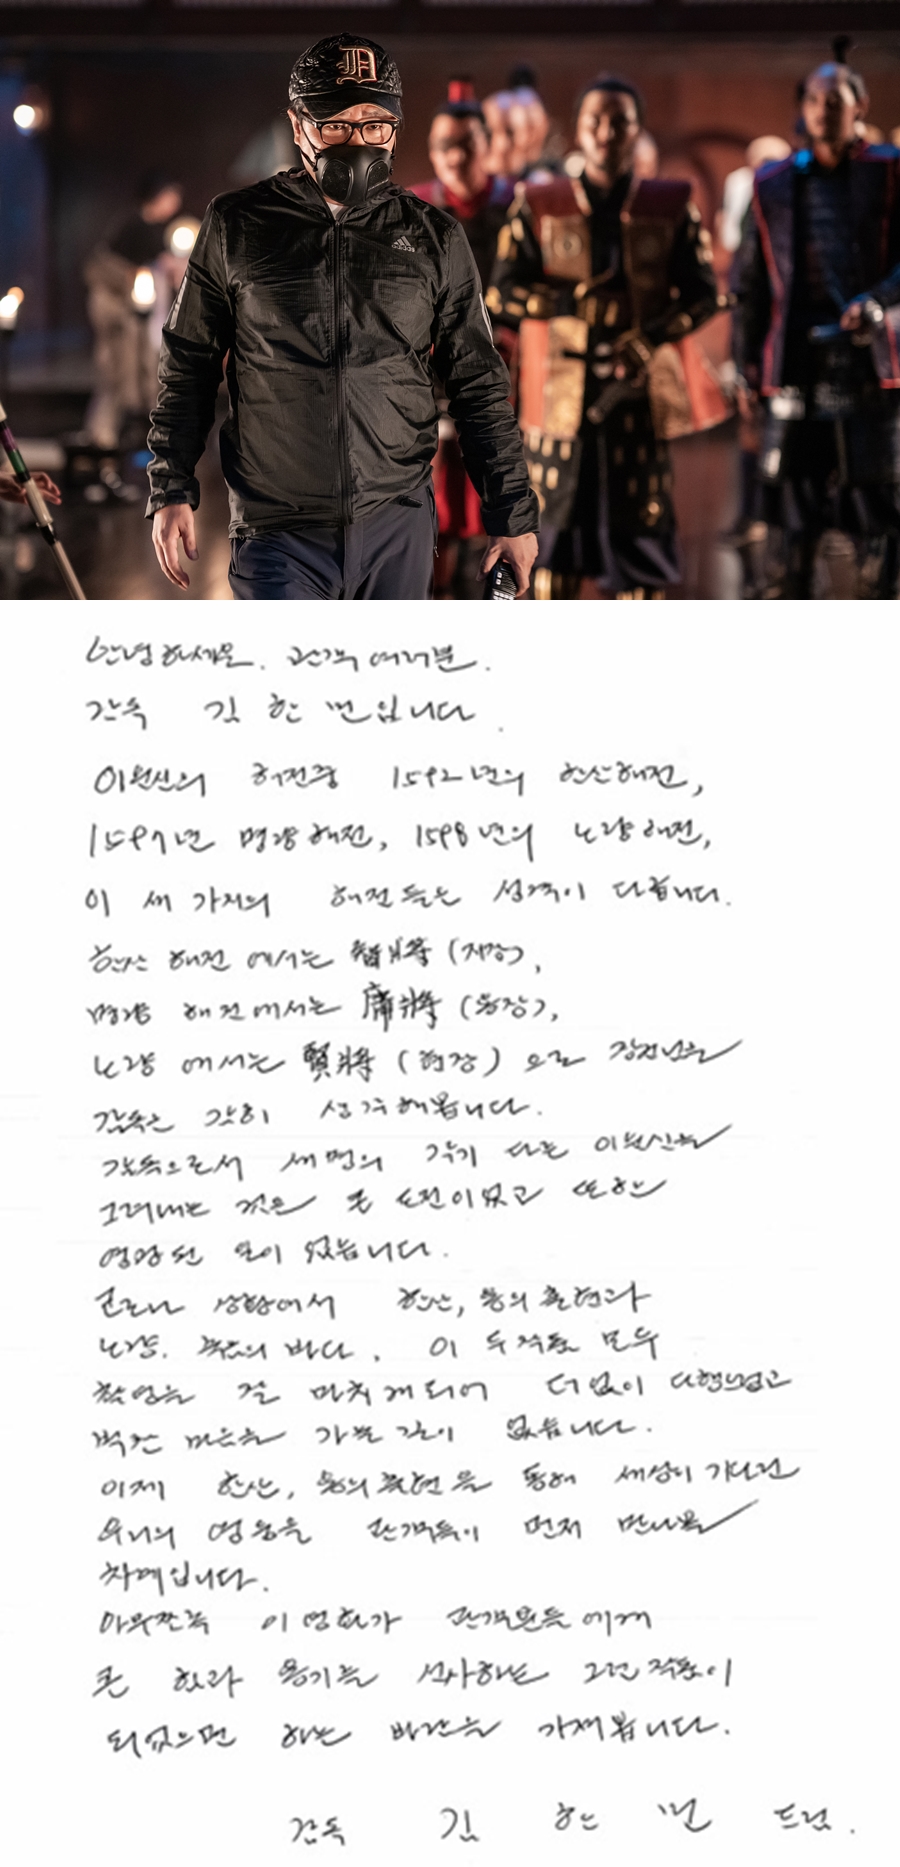 D
adidas
안녕하세요. 관객 여러분.
감독 김한민입니다.
이순신의 해전중 1592년의 한산해전,
1597년 명량해전, 1598년의 노량해전,
이 세 가지의 해전들은 성격이 다릅니다.
한산 해전에서는 智將 (지장),
명량 해전에서는 庸將 (용장),
노량에서는 賢將 (현장)으로 장군님을
감독은 감히 생각해봅니다.
감독으로서 세명의 각기 다른 이순신을
그려내는 것은 큰 도전이었고 또한
영광된 일이었습니다.
코로나 상황에서 한산, 용의 출현과
노량. 죽음의 바다. 이 두작품 모두
촬영을 잘 마치게되어 더없이 다행스럽고
벅찬 마음을 가눌 길이 없습니다.
이제 한산, 용의 출현을 통해 세상이 기다린
우리의 영웅을 관객들이 먼저 만나볼
차례입니다.
아무쪼록 이 영화가 관객분들에게
큰 힘과 용기를 선사하는 그런 작품이
되었으면 하는 바람을 가져봅니다.
감독 김한민 드림.